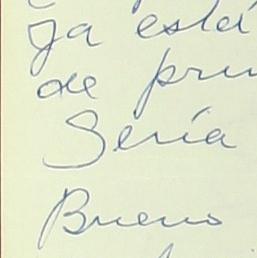 ya está
de
Sería
Bueno